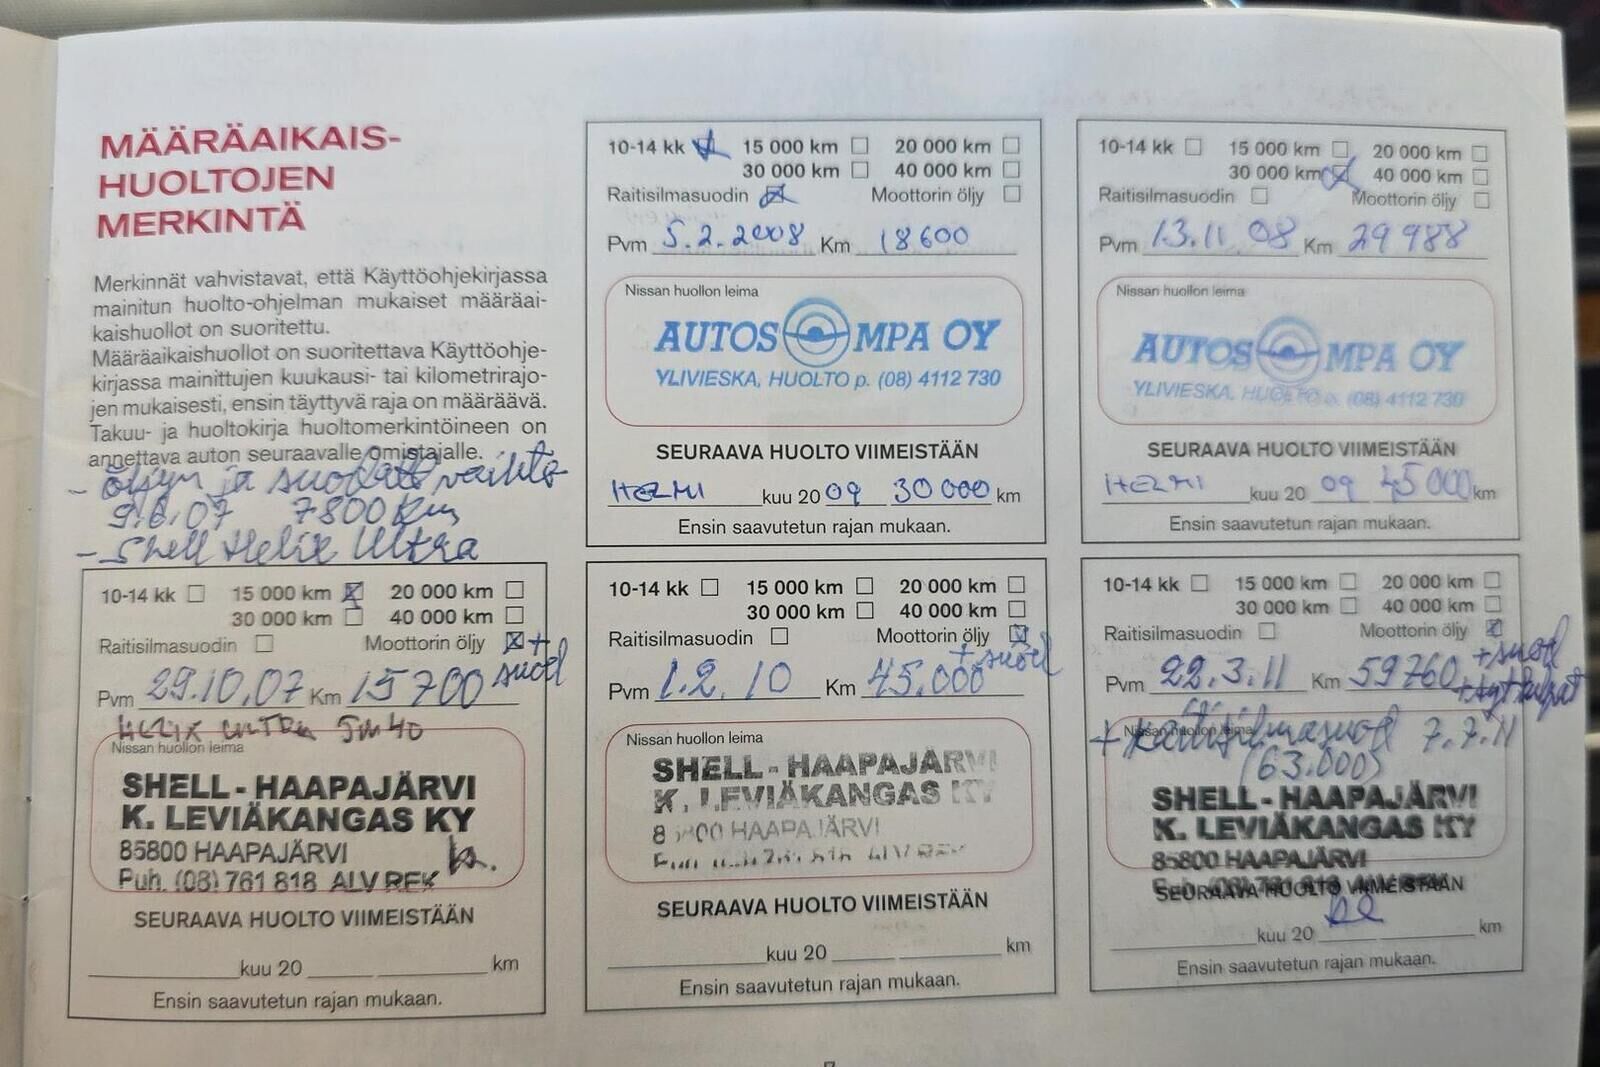 MÄÄRÄAIKAIS-
HUOLTOJEN
MERKINTÄ
Merkinnät vahvistavat, että Käyttöohjekirjassa
mainitun huolto-ohjelman mukaiset määräai-
kaishuollot on suoritettu.
Määräaikaishuollot on suoritettava Käyttöohje-
kirjassa mainittujen kuukausi- tai kilometrirajo-
jen mukaisesti, ensin täyttyvä raja on määräävä.
Takuu- ja huoltokirja huoltomerkintöineen on
annettava auton seuraavalle omistajalle.
- öljyn ja suodatt vaihto
9.6.07 7800 km
- Shell Helix Ultra
10-14 kk 15 000 km 20 000 km
30 000 km 40 000 km
Raitisilmasuodin Moottorin öljy + suod
Pvm 29.10.07 Km 15700
HELIX ULTRA 5W40
Nissan huollon leima
SHELL - HAAPAJÄRVI
K. LEVIÄKANGAS KY
85800 HAAPAJÄRVI
Puh. (08) 761 818 ALV REK
SEURAAVA HUOLTO VIIMEISTÄÄN
kuu 20 km
Ensin saavutetun rajan mukaan.
10-14 kk 15 000 km 20 000 km
30 000 km 40 000 km
Raitisilmasuodin Moottorin öljy
Pvm 5.2.2008 Km 18600
Nissan huollon leima
AUTOSOMPA OY
YLIVIESKA, HUOLTO p. (08) 4112 730
SEURAAVA HUOLTO VIIMEISTÄÄN
HELMI kuu 20 09 30 000 km
Ensin saavutetun rajan mukaan.
10-14 kk 15 000 km 20 000 km
30 000 km 40 000 km
Raitisilmasuodin Moottorin öljy
Pvm 13.11 08 Km 29 988
Nissan huollon leima
AUTOSOMPA OY
YLIVIESKA, HUOLTO p. (08) 4112 730
SEURAAVA HUOLTO VIIMEISTÄÄN
HELMI kuu 20 09 45 000 km
Ensin saavutetun rajan mukaan.
10-14 kk 15 000 km 20 000 km
30 000 km 40 000 km
Raitisilmasuodin Moottorin öljy
+ suod
Pvm 1.2.10 Km 45.000
Nissan huollon leima
SHELL - HAAPAJÄRVI
K. LEVIÄKANGAS KY
85800 HAAPAJÄRVI
761 818 ALV REK
SEURAAVA HUOLTO VIIMEISTÄÄN
kuu 20 km
Ensin saavutetun rajan mukaan.
10-14 kk 15 000 km 20 000 km
30 000 km 40 000 km
Raitisilmasuodin Moottorin öljy
Pvm 22.3.11 Km 59760 + suod
+ Raitisilmasuod 7.7.11
Nissan huollon leima
(63.000)
SHELL - HAAPAJÄRVI
K. LEVIÄKANGAS KY
85800 HAAPAJÄRVI
SEURAAVA HUOLTO VIIMEISTÄÄN
kuu 20 km
Ensin saavutetun rajan mukaan.